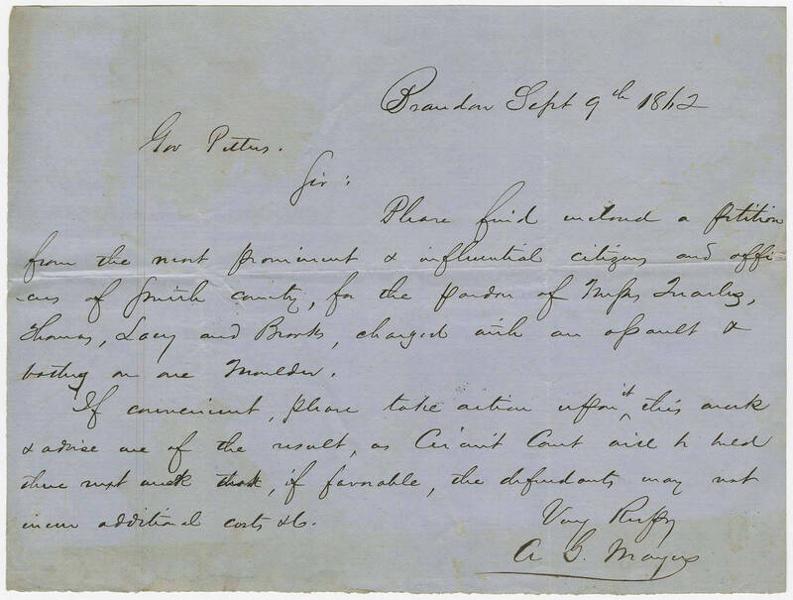 Brandon Sept 9th 1862
Gov Pettus.
Sir:
Please find enclosed a petition
from the most prominent & influential citizens and offi-
cers of Smith county, for the pardon of Messrs Quarles,
Thomas, Lacy and Brooks, charged with an assault &
battery on one Moulder.
If convenient, please take action upon it, this week
& advise me of the result, as Circuit Court will be held
there next week, if favorable, the defendants may not
incur additional costs &c.
Very Respy
A. G. Mayers